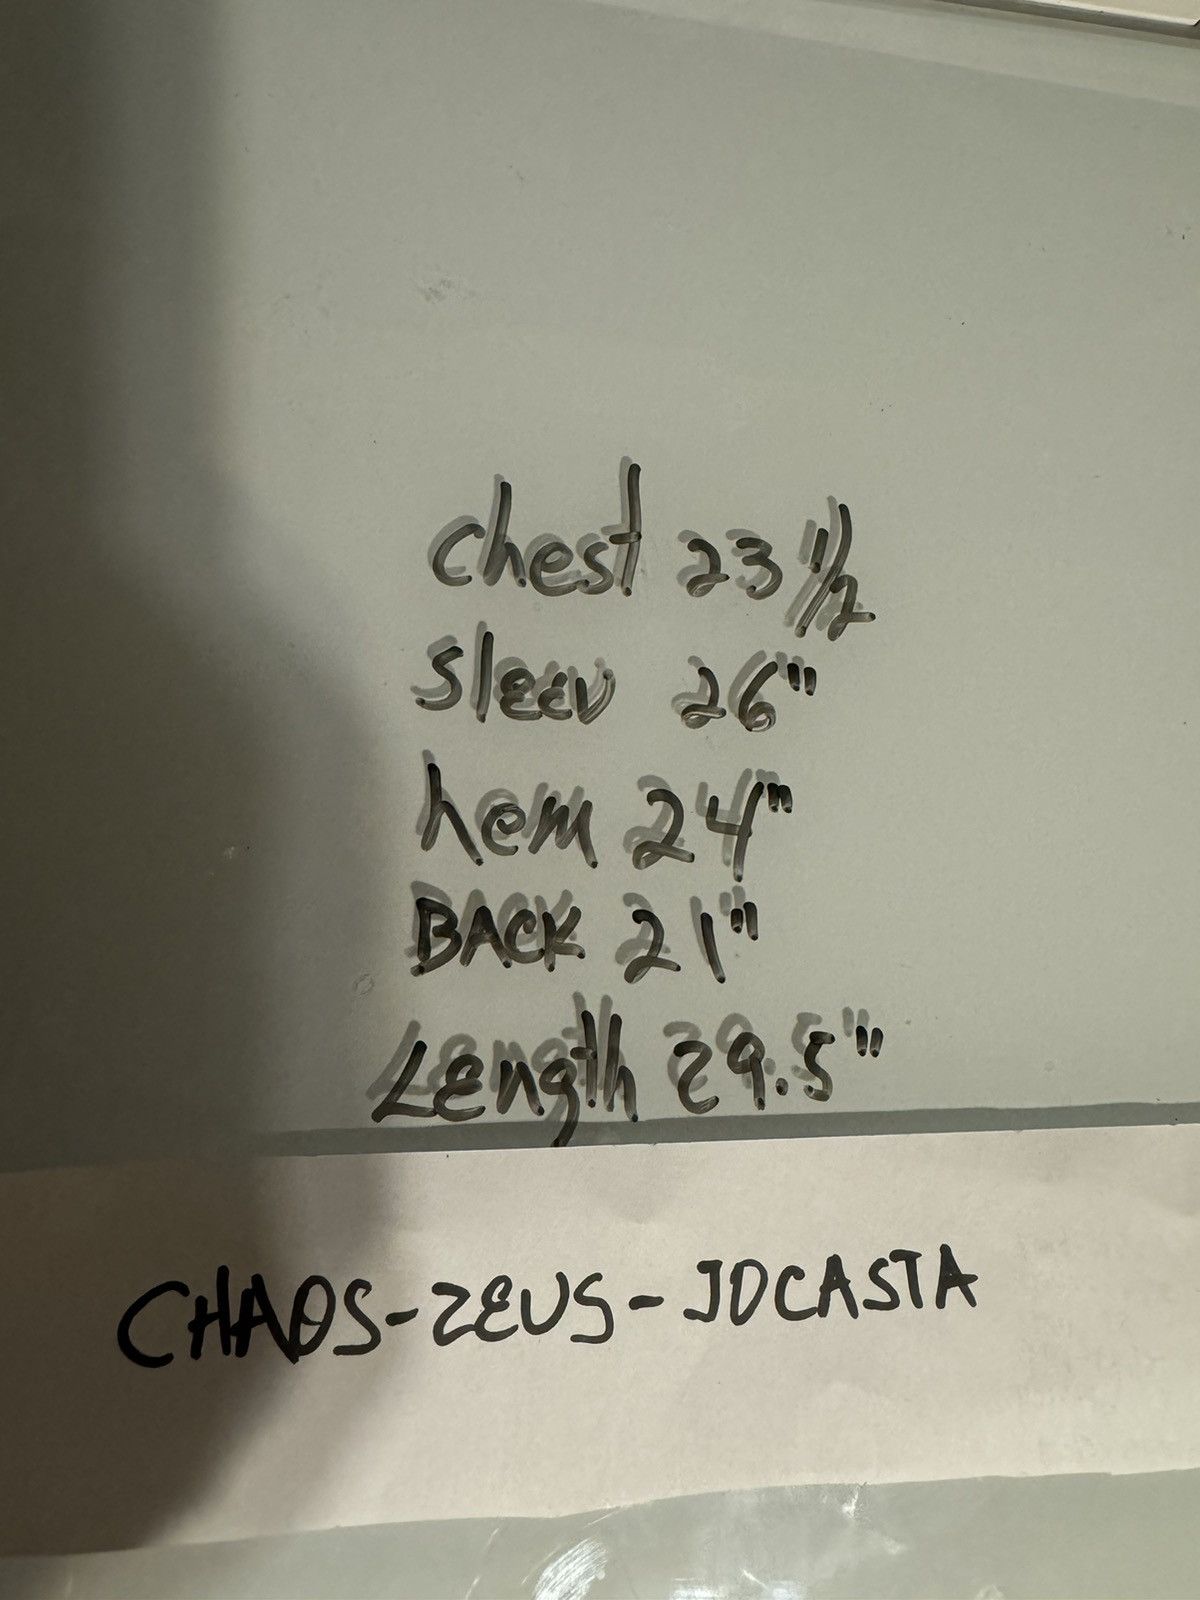 chest 23 1/2
sleev 26"
hem 24"
BACK 21"
Length 29.5"
CHAOS-ZEUS-JOCASTA